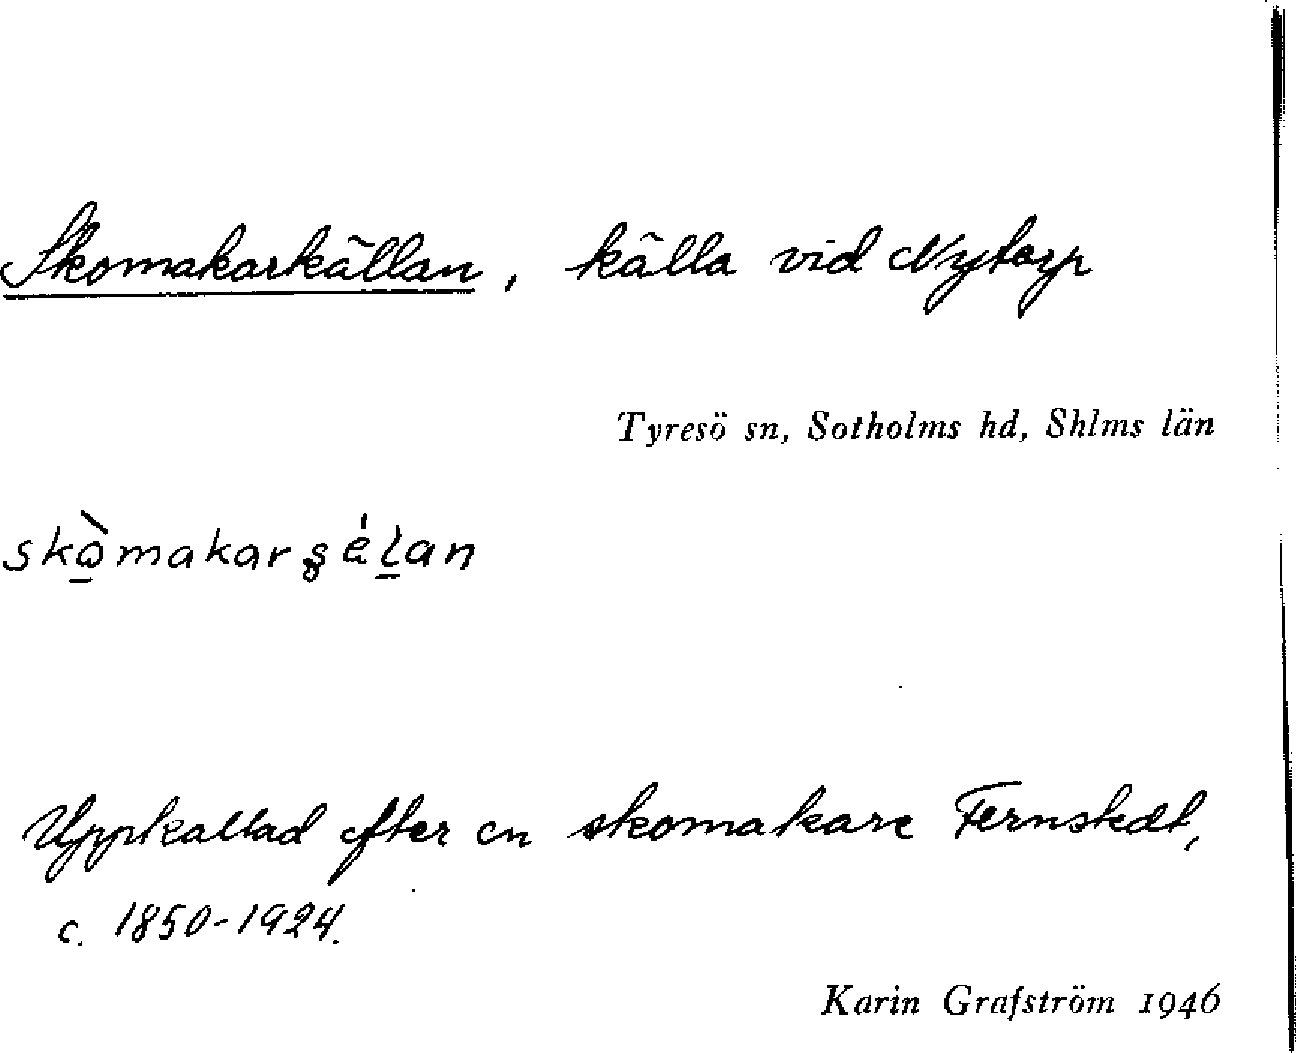 Skomakarkällan, källa vid Nytorp
Tyresö sn, Sotholms hd, Shlms län
skò̱makarʂéḻan
Uppkallad efter en skomakare Fernstedt,
c. 1850-1924.
Karin Grafström 1946